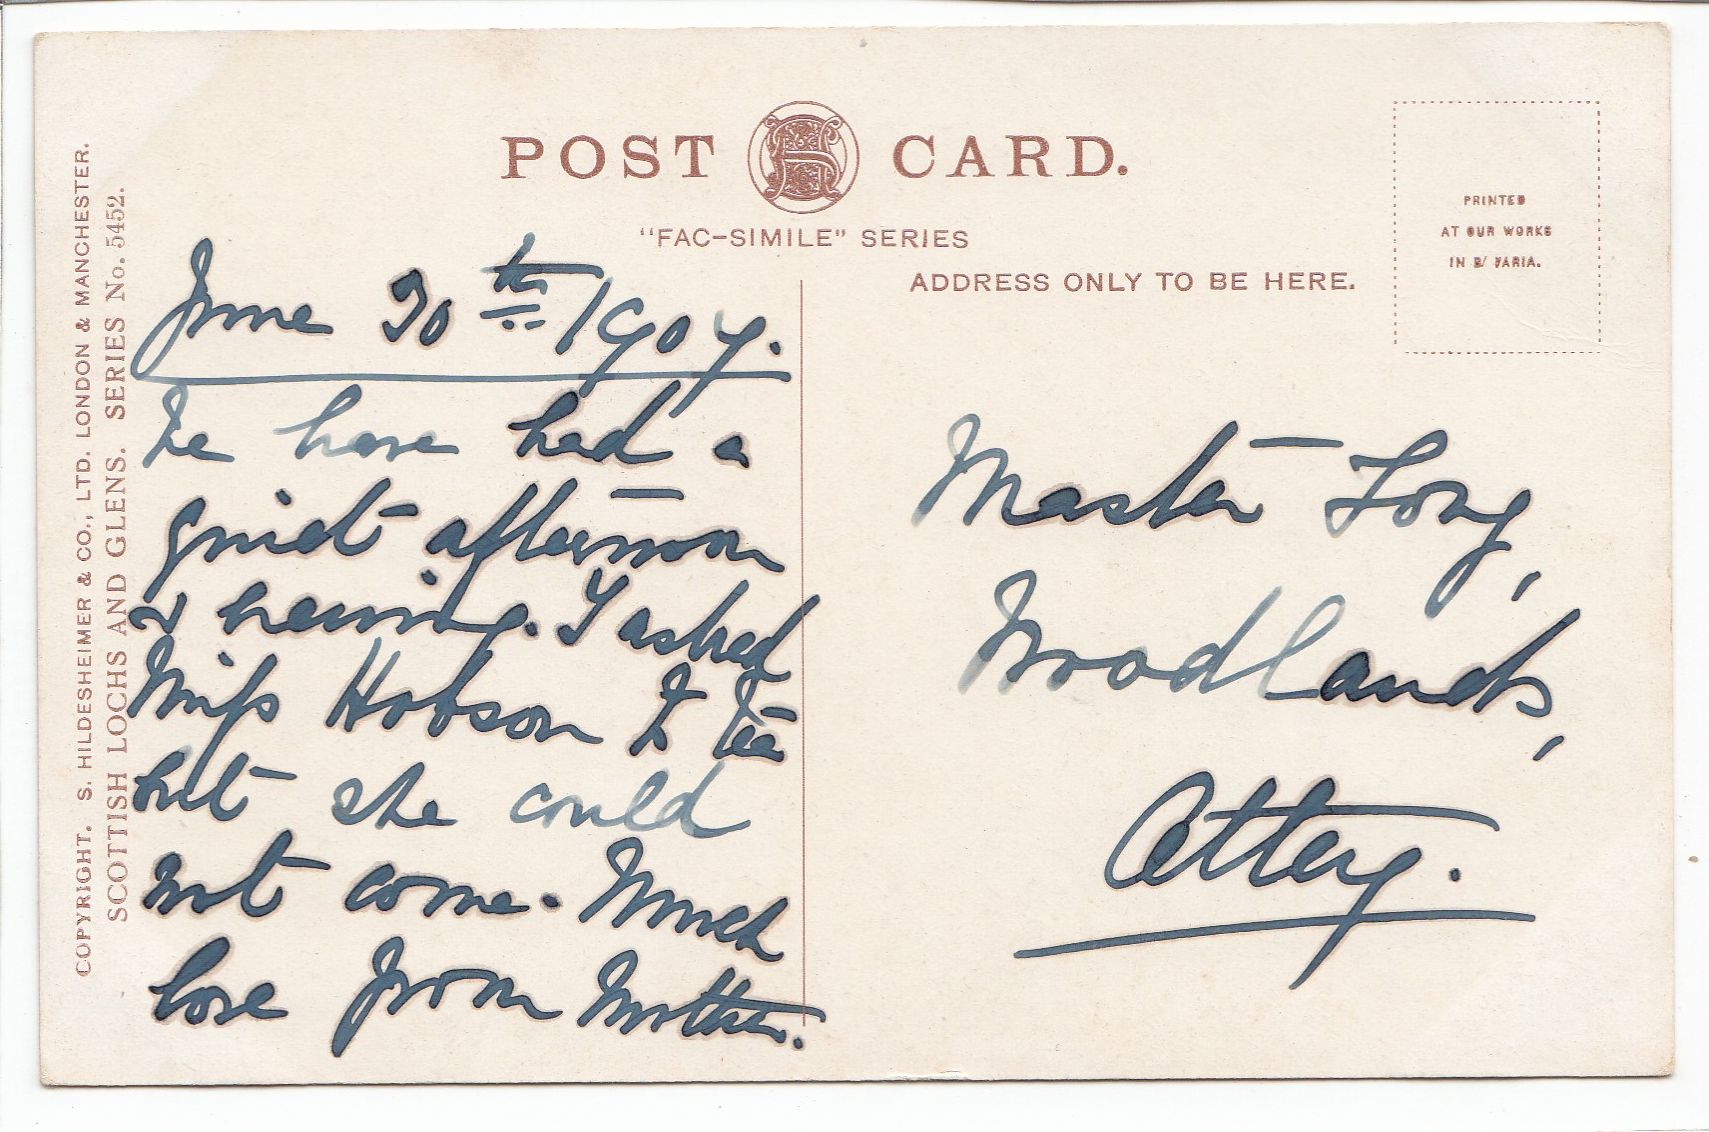 POST CARD.
"FAC-SIMILE" SERIES
ADDRESS ONLY TO BE HERE.
PRINTED
AT OUR WORKS
IN BAVARIA.
COPYRIGHT. S. HILDESHEIMER & CO., LTD. LONDON & MANCHESTER.
SCOTTISH LOCHS AND GLENS. SERIES No. 5452.
June 30th 1907.
We have had a
quiet afternoon
& evening. I asked
Miss Hobson to tea
but she could
not come. Much
love from Mother.
Master Long,
Woodlands,
Ottery.